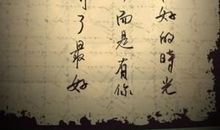 好的時光
而是有你
了最好